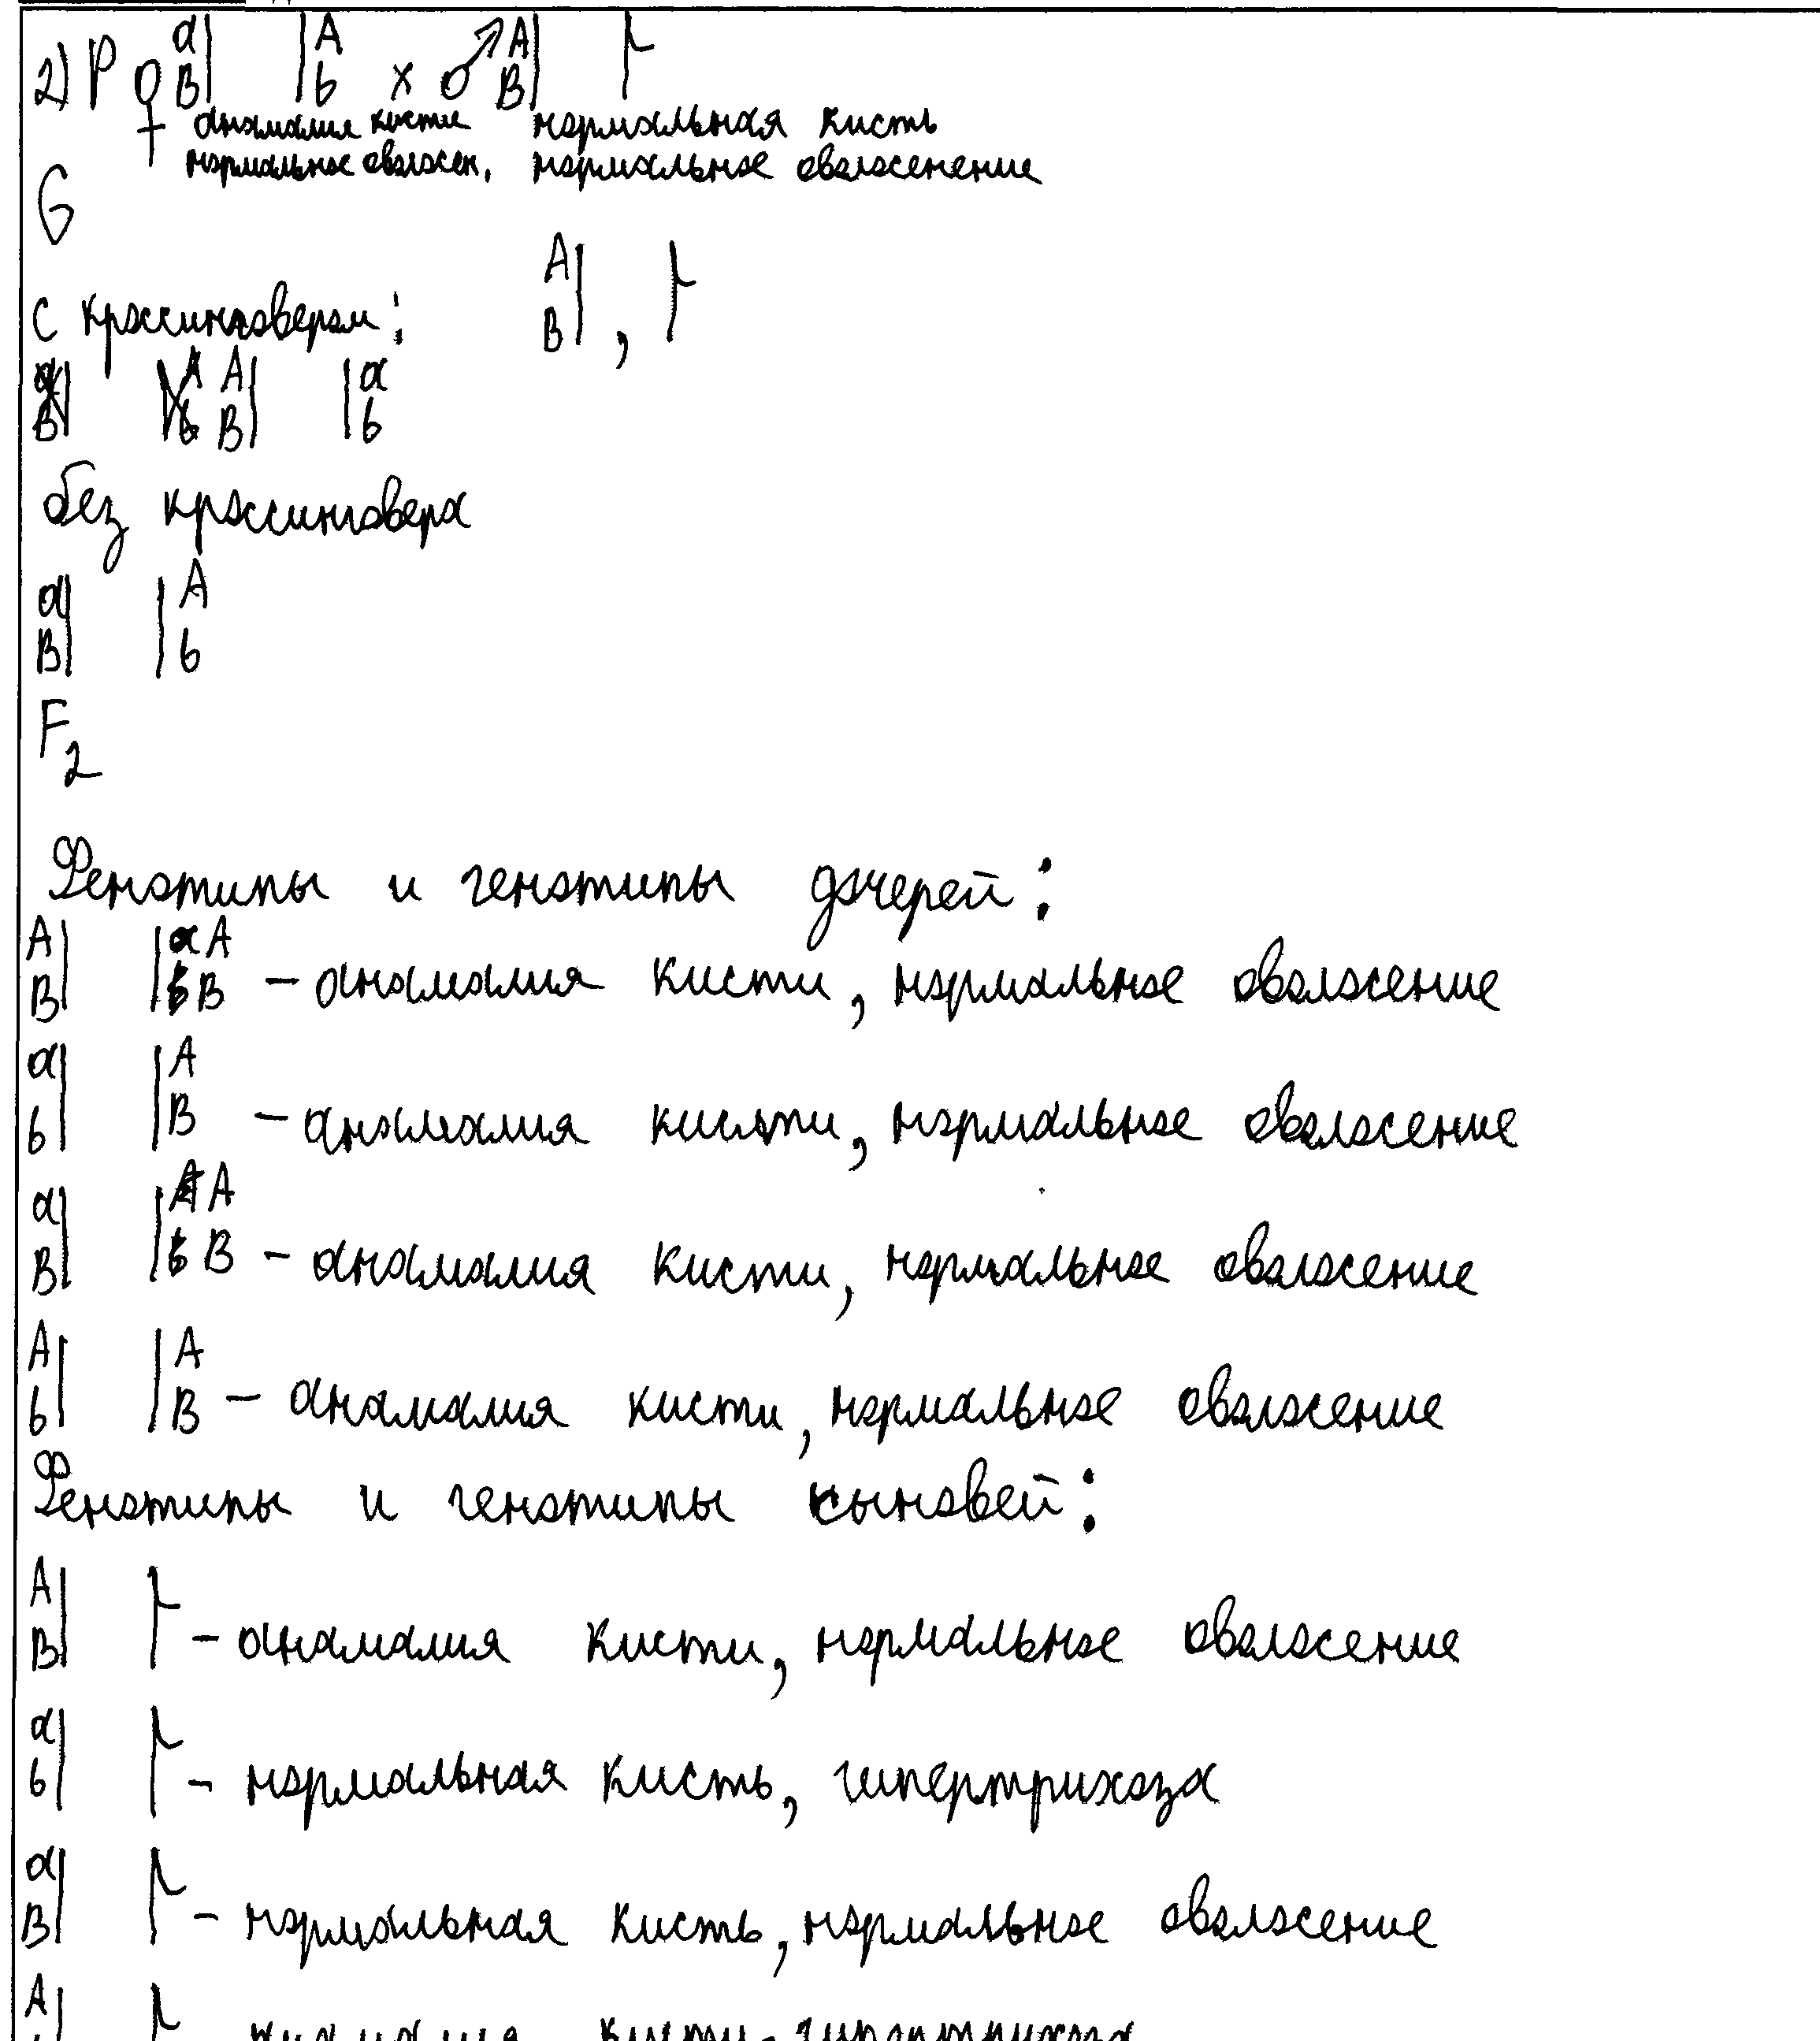 2) P ♀ a| |A x ♂ A| ⊦
B| |b B|
аномалия кисти нормальная кисть
нормальное оволосен. нормальное оволосенение
G
A| ⊦
с кроссинговером: B| ,
A| |a
B| |b
без кроссинговера
a| |A
B| |b
F2
Фенотипы и генотипы дочерей:
A| |A
B| |B – аномалия кисти, нормальное оволосение
a| |A
b| |B – аномалия кисти, нормальное оволосение
a| |A
B| |B – аномалия кисти, нормальное оволосение
A| |A
b| |B – аномалия кисти, нормальное оволосение
Фенотипы и генотипы сыновей:
A| ⊦
B| – аномалия кисти, нормальное оволосение
a| ⊦
b| – нормальная кисть, гипертрихоза
a| ⊦
B| – нормальная кисть, нормальное оволосение
A| ⊦